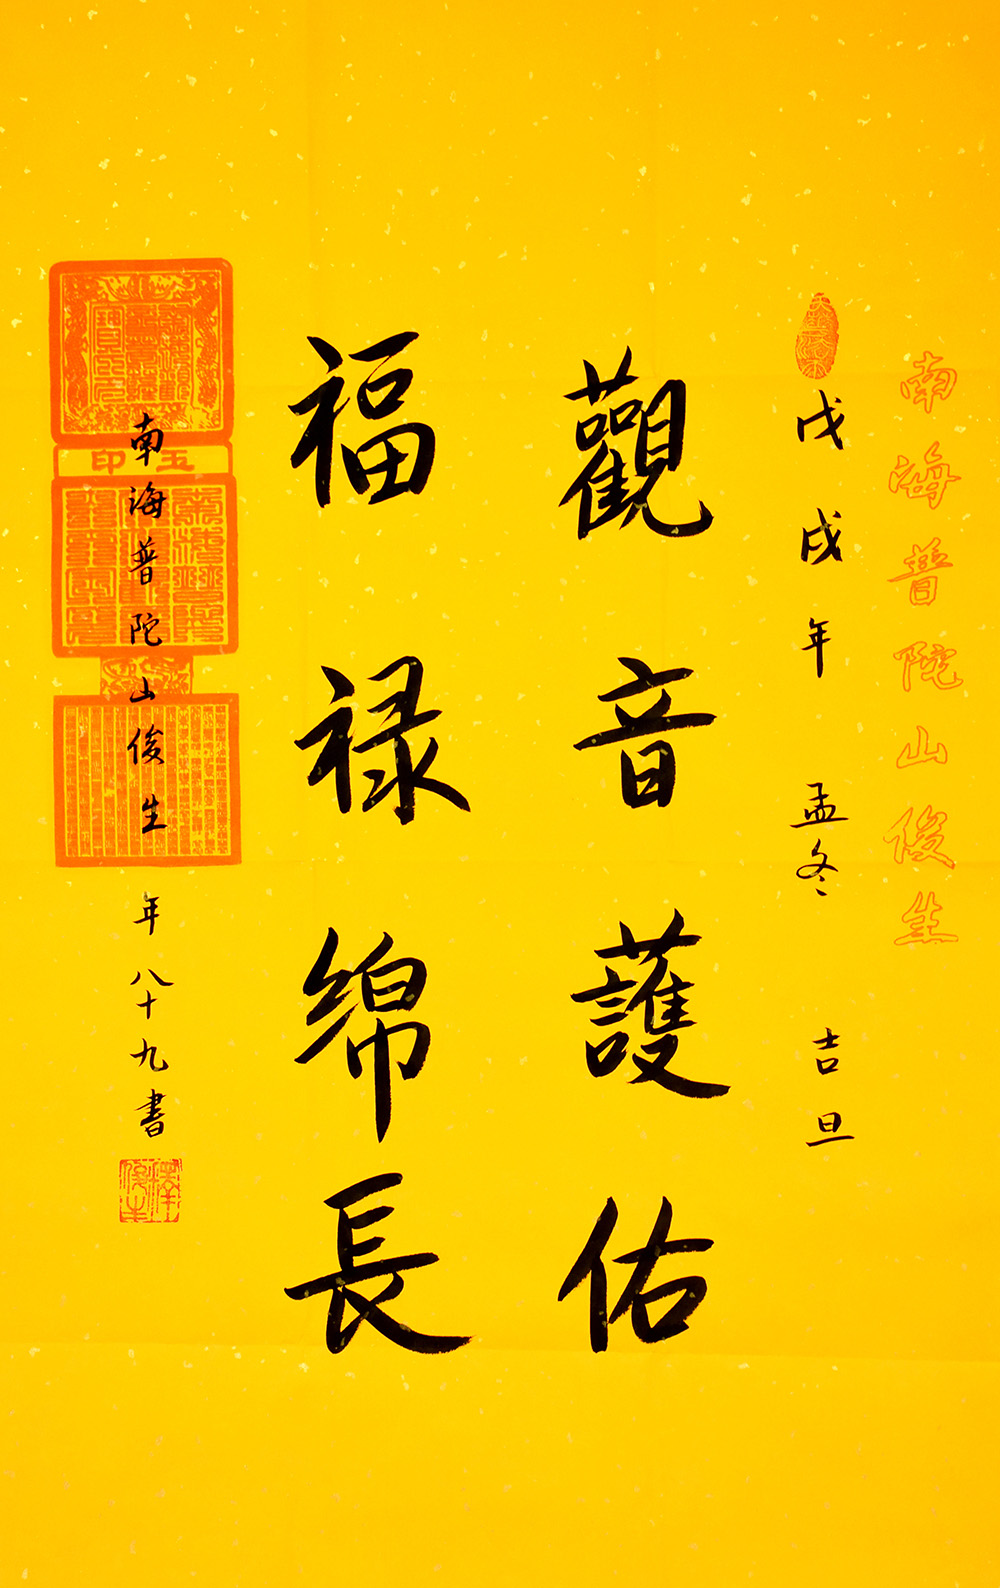 南海普陀山俊生
戊戌年 孟冬 吉旦
觀音護佑
福禄綿長
玉印
南海普陀山俊生 年八十九書